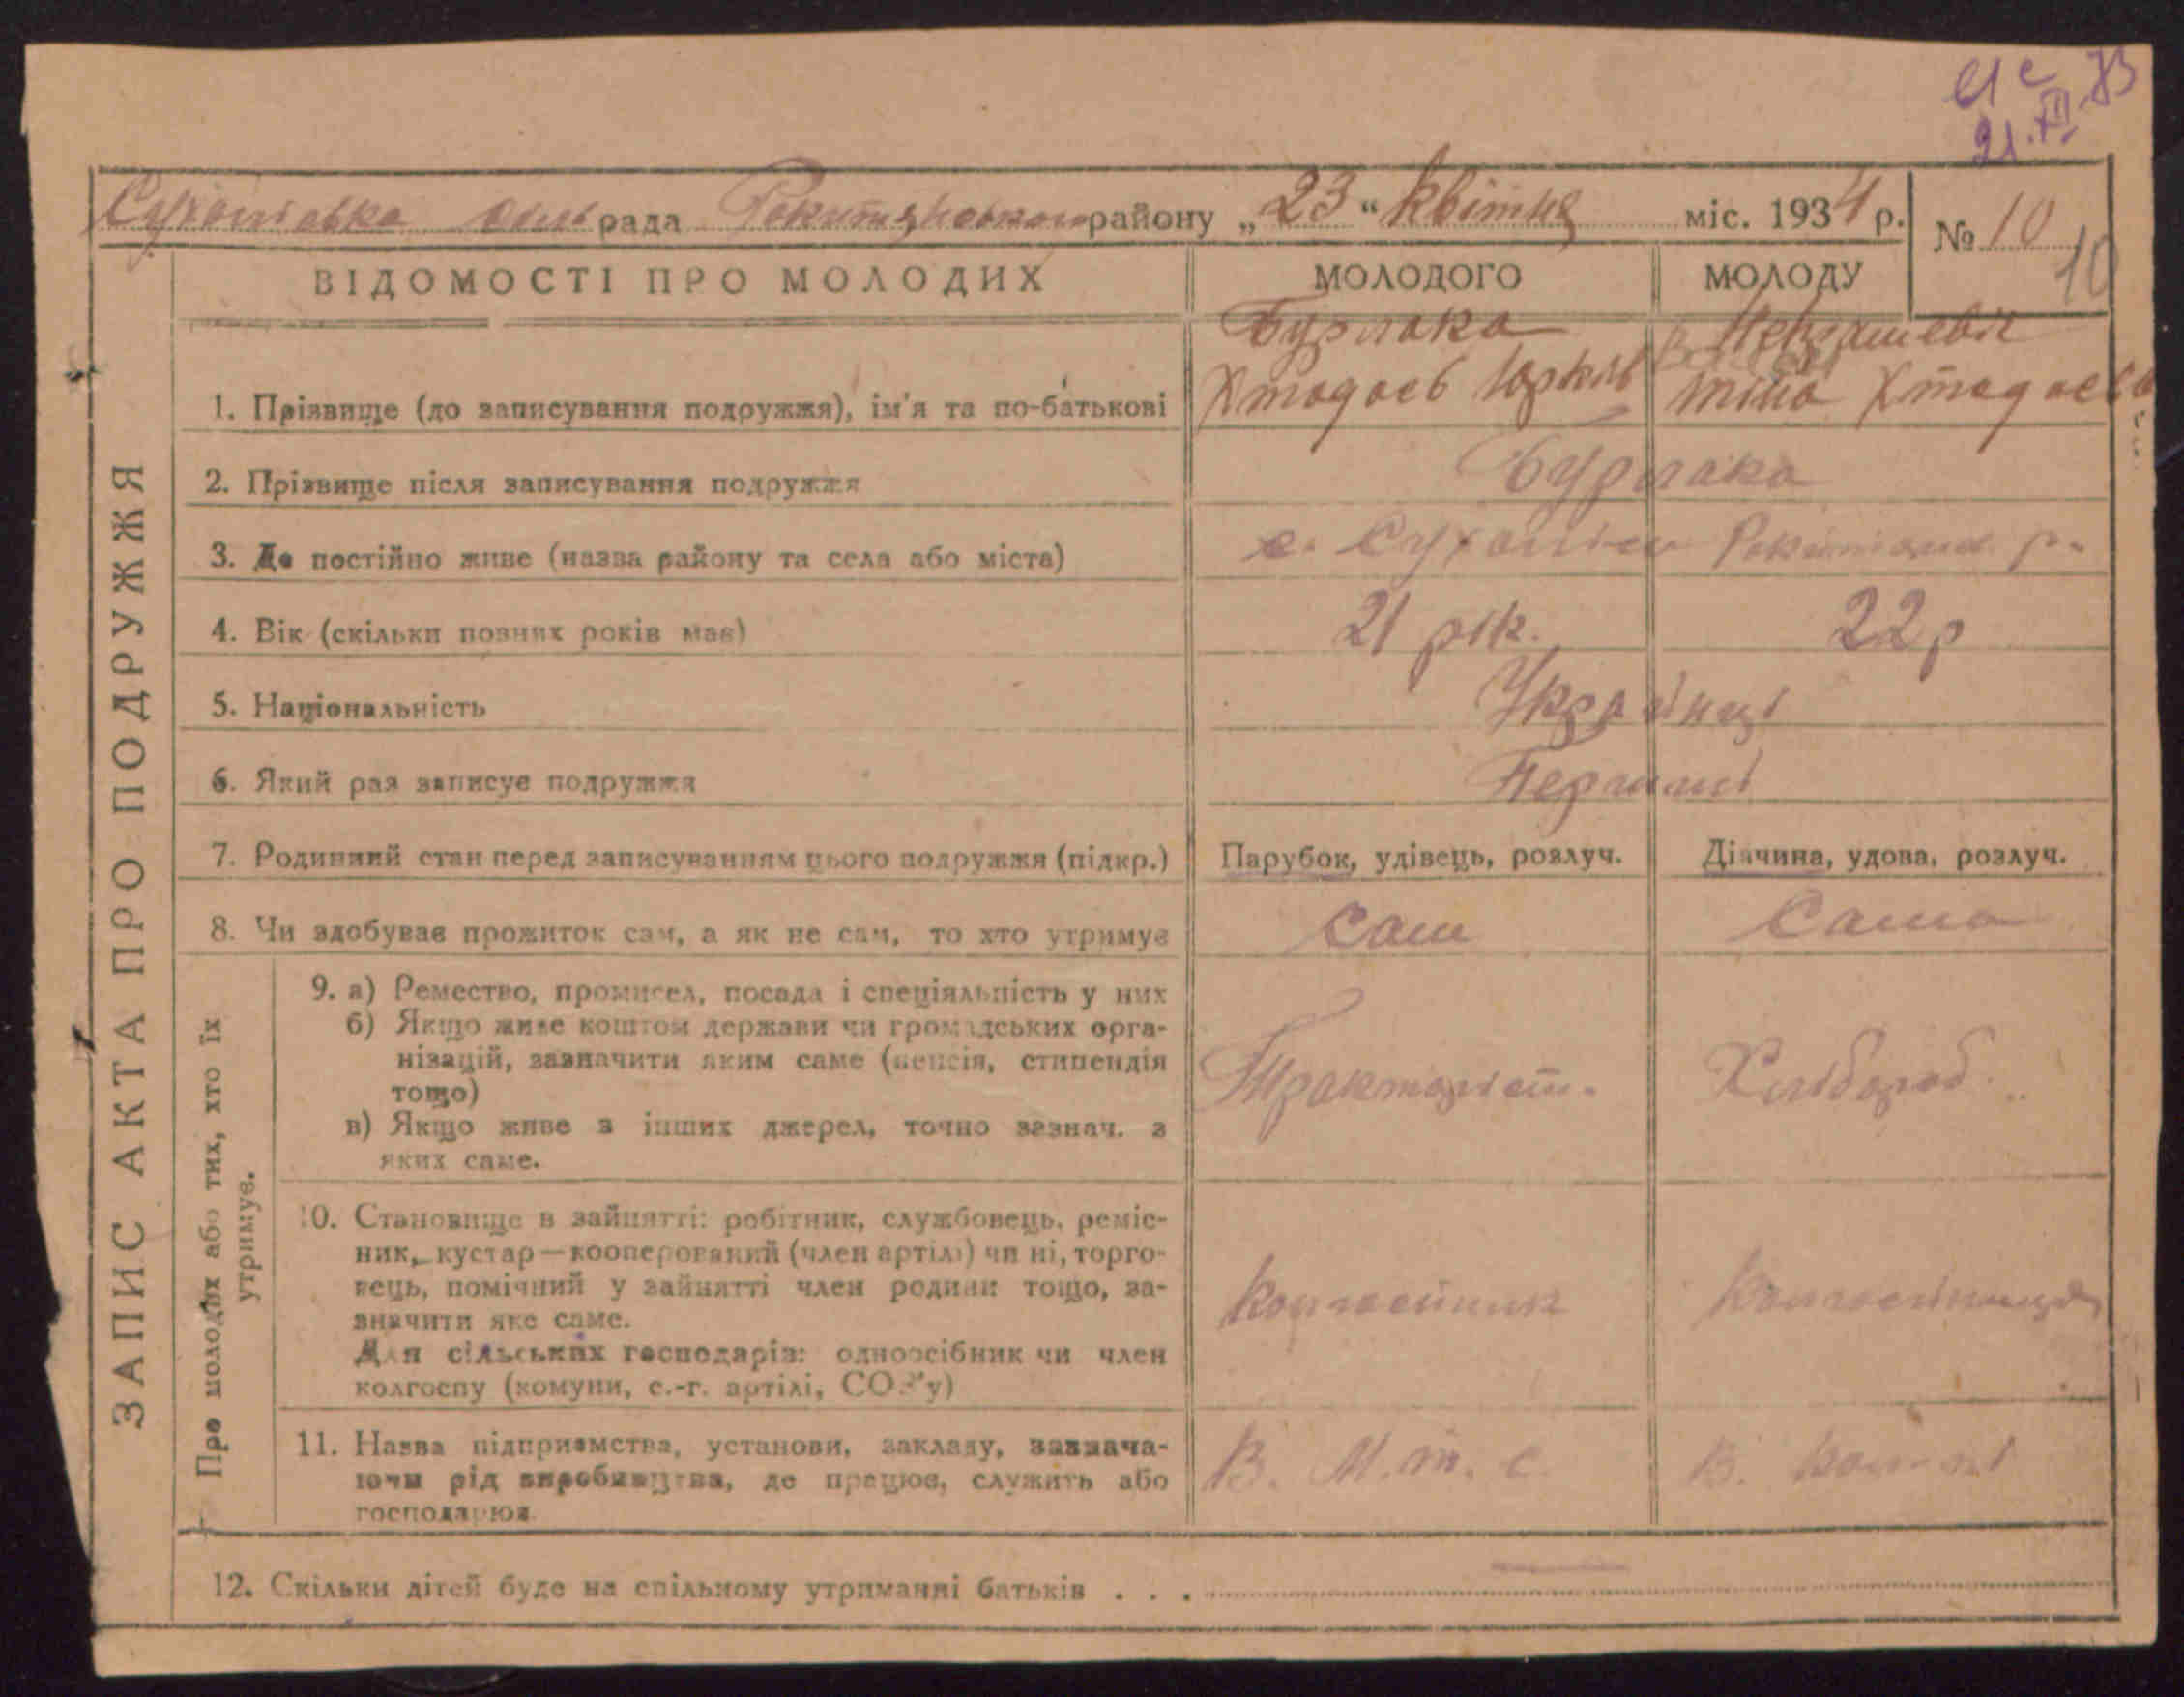 21.XII.73
рада района „23“ квітня міс. 1934 р.
№ 10
10
ВІДОМОСТІ ПРО МОЛОДИХ
МОЛОДОГО
МОЛОДУ
ЗАПИС АКТА ПРО ПОДРУЖЖЯ
1. Прізвище (до записування подружжя), ім'я та по-батькові
Бурлака
2. Прізвище після записування подружжя
Бурлака
3. Де постійно живе (назва району та села або міста)
с. р.
4. Вік (скільки повних років має)
21 рік.
22 р
5. Національність
Українці
6. Який раз записує подружжя
Перший
7. Родинний стан перед записуванням цього подружжя (підкр.)
Парубок, удівець, розлуч.
Дівчина, удова, розлуч.
8. Чи здобуває прожиток сам, а як не сам, то хто утримує
Сам
Сама
Про молодих або тих, хто їх
утримує.
9. а) Ремество, промисел, посада і спеціяльність у них
б) Якщо живе коштом держави чи громадських орга-
нізацій, зазначити яким саме (пенсія, стипендія
тощо)
в) Якщо живе з інших джерел, точно зазнач. з
яких саме.
Тракторіст.
Хлібороб.
10. Становище в зайнятті: робітник, службовець, реміс-
ник, кустар—кооперований (член артілі) чи ні, торго-
вець, помічний у зайнятті член родини тощо, за-
значити яке саме.
Для сільських господарів: одноосібник чи член
колгоспу (комуни, с.-г. артілі, СОЗ'у)
11. Назва підприємства, установи, закладу, зазнача-
ючи рід виробництва, де працює, служить або
господарює
В. М. т. с.
В.
12. Скільки дітей буде на спільному утриманні батьків . . .